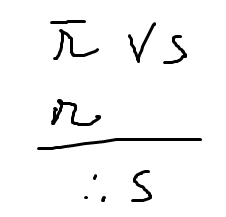 r̅ ∨ s
r
∴ s